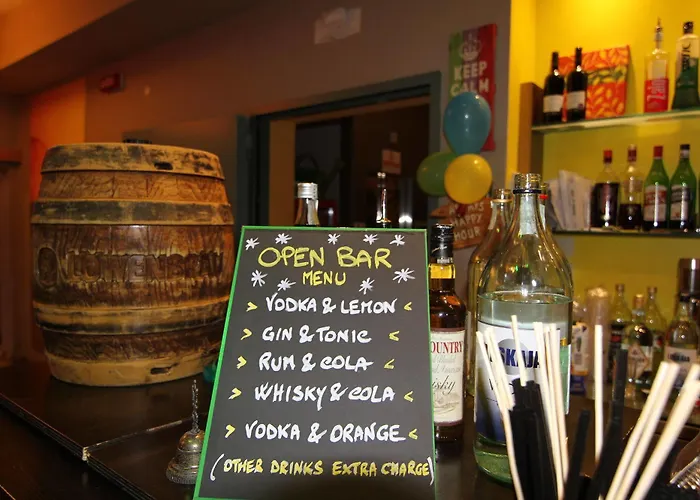 KEEP
CALM
OPEN BAR
MENU
VODKA & LEMON
GIN & TONIC
RUM & COLA
WHISKY & COLA
VODKA & ORANGE
(OTHER DRINKS EXTRA CHARGE)
COUNTRY